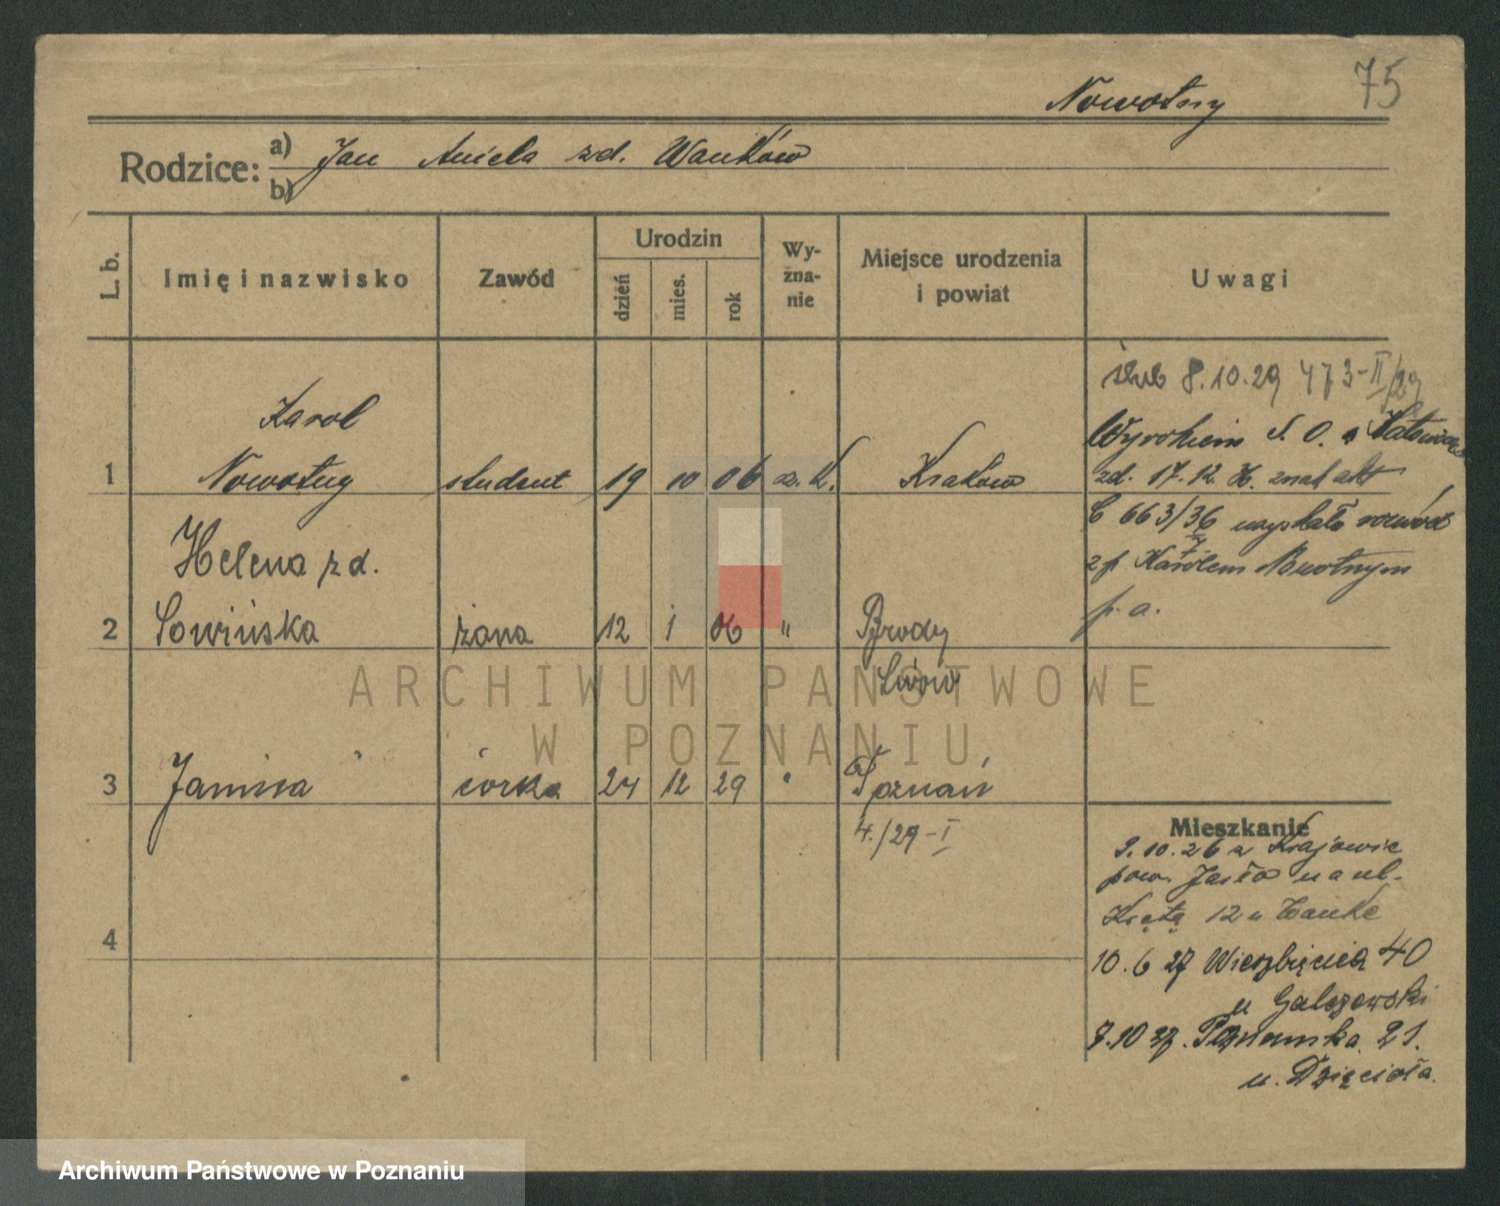 Nowotny 75
Rodzice: a) Jan Aniela zd. Wańków
b)
L. b. Imię i nazwisko Zawód Urodzin dzień mies. rok Wy-zna-nie Miejsce urodzenia i powiat Uwagi
ślub 8.10.29 473-II/29
Karol
Wyrokiem S. O. Katowice
1 Nowotny student 19 10 06 rz. K. Kraków
zd. 17. 12. znak akt
C 663/36 uzyskała rozwód
Helena zd.
z p. Karolem Nowotnym
p. a.
2 Sowińska żona 12 1 06 " Brody
Lwów
3 Janina córka 24 12 29 " Poznań
4./29-I
Mieszkanie
9.10.26 z Krajowic
pow. Jasło na ul.
Krętą 12 u
4
10.6 27 Wierzbięcice 40
u Galczewski
7.10 27. Poznańska 21.
u. Dzięcioła.
ARCHIWUM PAŃSTWOWE
W POZNANIU
Archiwum Państwowe w Poznaniu